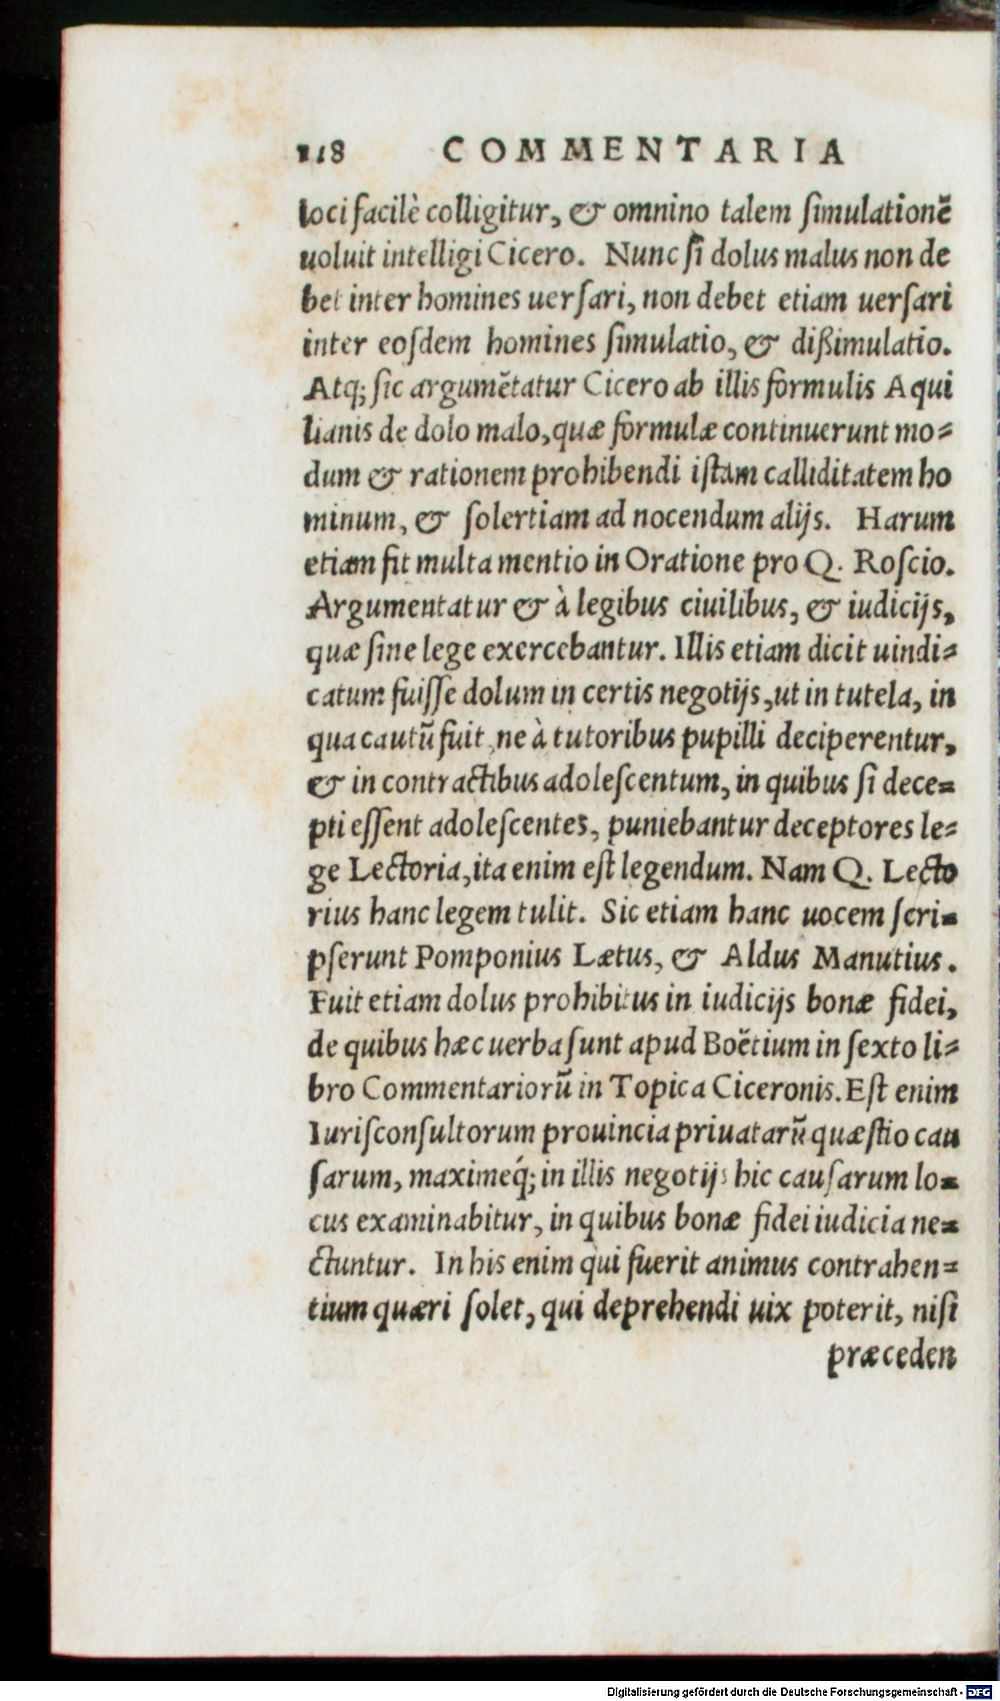 118 COMMENTARIA
loci facilè colligitur, & omnino talem ſimulationẽ
uoluit intelligi Cicero. Nunc ſi dolus malus non de
bet inter homines uerſari, non debet etiam uerſari
inter eoſdem homines ſimulatio, & dißimulatio.
Atq; ſic argumẽtatur Cicero ab illis formulis Aqui
lianis de dolo malo, quæ formulæ continuerunt mo-
dum & rationem prohibendi iſtam calliditatem ho
minum, & ſolertiam ad nocendum alijs. Harum
etiam fit multa mentio in Oratione pro Q. Roſcio.
Argumentatur & à legibus ciuilibus, & iudicijs,
quæ ſine lege exercebantur. Illis etiam dicit uindi-
catum fuiſſe dolum in certis negotijs, ut in tutela, in
qua cautũ fuit, ne à tutoribus pupilli deciperentur,
& in contractibus adoleſcentum, in quibus ſi dece-
pti eſſent adoleſcentes, puniebantur deceptores le-
ge Lectoria, ita enim eſt legendum. Nam Q. Lecto
rius hanc legem tulit. Sic etiam hanc uocem ſcri-
pſerunt Pomponius Lætus, & Aldus Manutius.
Fuit etiam dolus prohibitus in iudicijs bonæ fidei,
de quibus hæc uerba ſunt apud Boëtium in ſexto li-
bro Commentariorũ in Topica Ciceronis. Eſt enim
Iuriſconſultorum prouincia priuatarũ quæſtio cau
ſarum, maximeq́; in illis negotijs hic cauſarum lo-
cus examinabitur, in quibus bonæ fidei iudicia ne-
ctuntur. In his enim qui fuerit animus contrahen-
tium quæri ſolet, qui deprehendi uix poterit, niſi
præceden
Digitalisierung gefördert durch die Deutsche Forschungsgemeinschaft - DFG